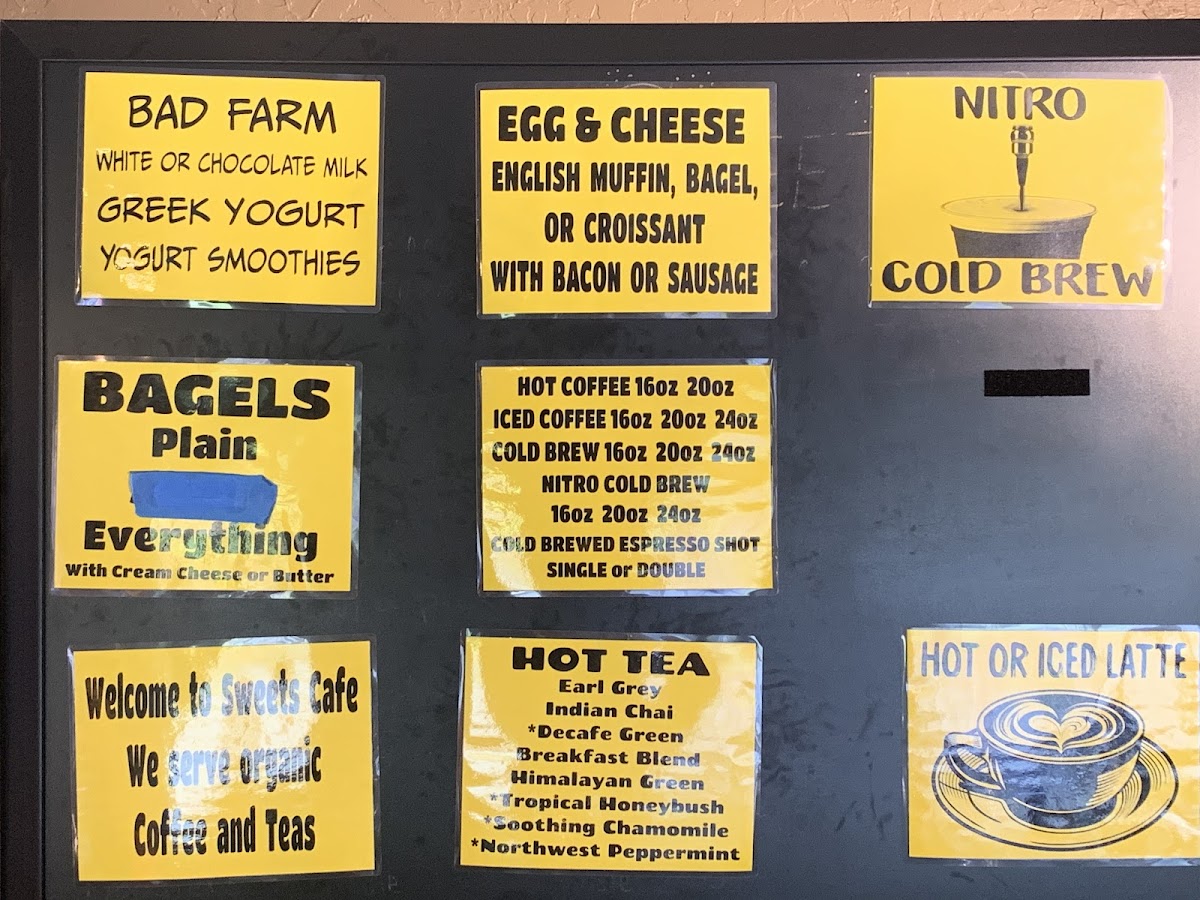 BAD FARM
WHITE OR CHOCOLATE MILK
GREEK YOGURT
YOGURT SMOOTHIES
EGG & CHEESE
ENGLISH MUFFIN, BAGEL,
OR CROISSANT
WITH BACON OR SAUSAGE
NITRO
COLD BREW
BAGELS
Plain
Everything
With Cream Cheese or Butter
HOT COFFEE 16oz 20oz
ICED COFFEE 16oz 20oz 24oz
COLD BREW 16oz 20oz 24oz
NITRO COLD BREW
16oz 20oz 24oz
COLD BREWED ESPRESSO SHOT
SINGLE or DOUBLE
Welcome to Sweets Cafe
We serve organic
Coffee and Teas
HOT TEA
Earl Grey
Indian Chai
*Decafe Green
Breakfast Blend
Himalayan Green
*Tropical Honeybush
*Soothing Chamomile
*Northwest Peppermint
HOT OR ICED LATTE